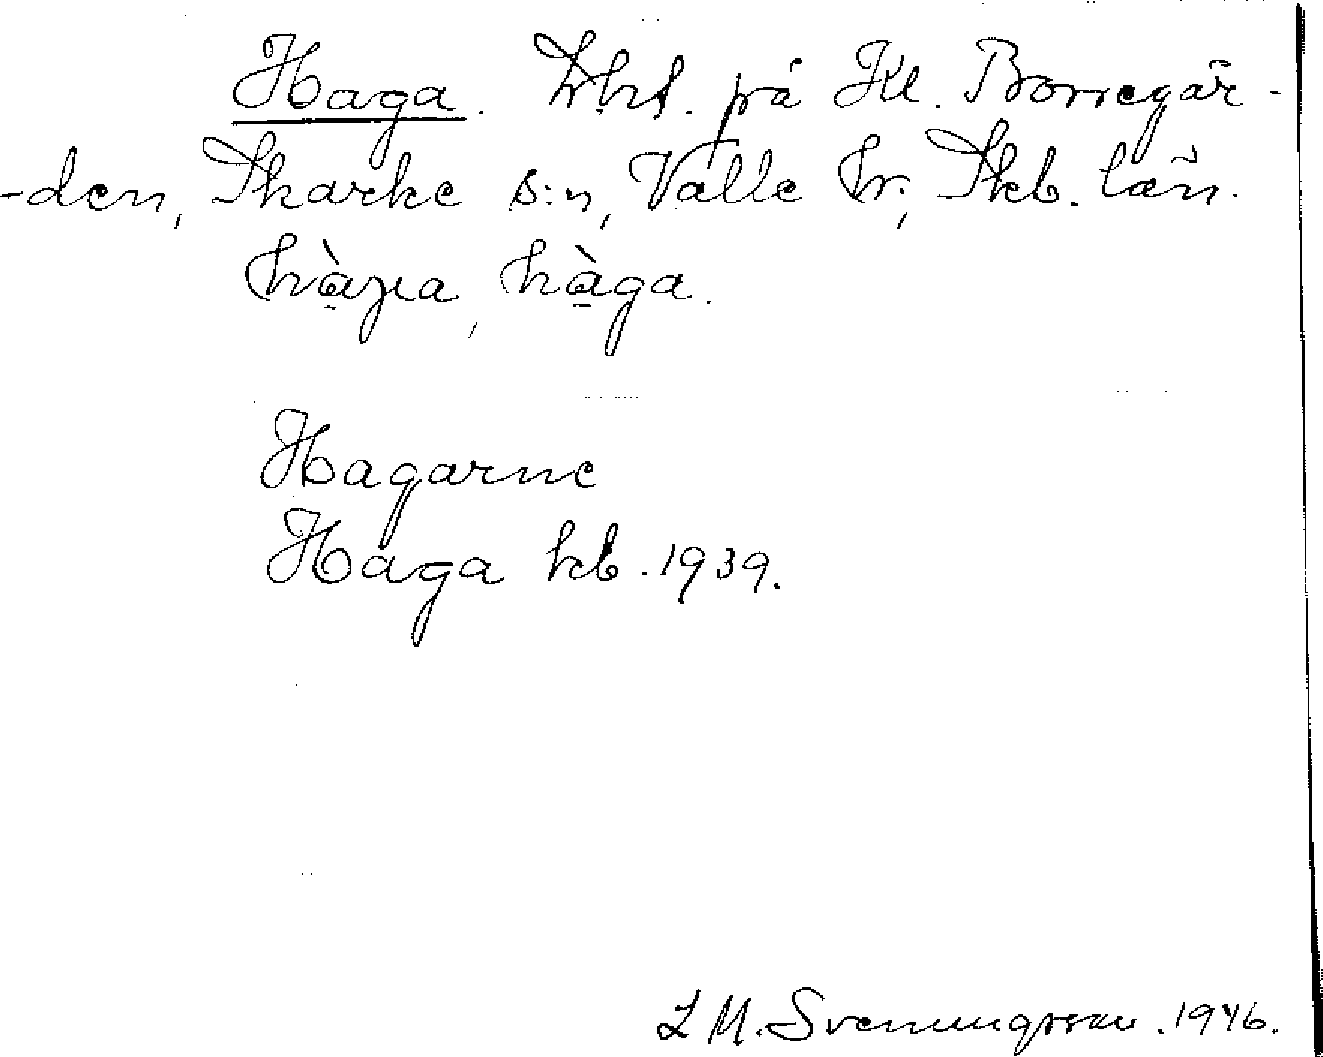 Haga. på Kl. Borregår-
-den, Skarke s:n, Valle hr, Skb. län.
hàga.
Hagarne
Haga kb. 1939.
L M. Svenungsson. 1946.